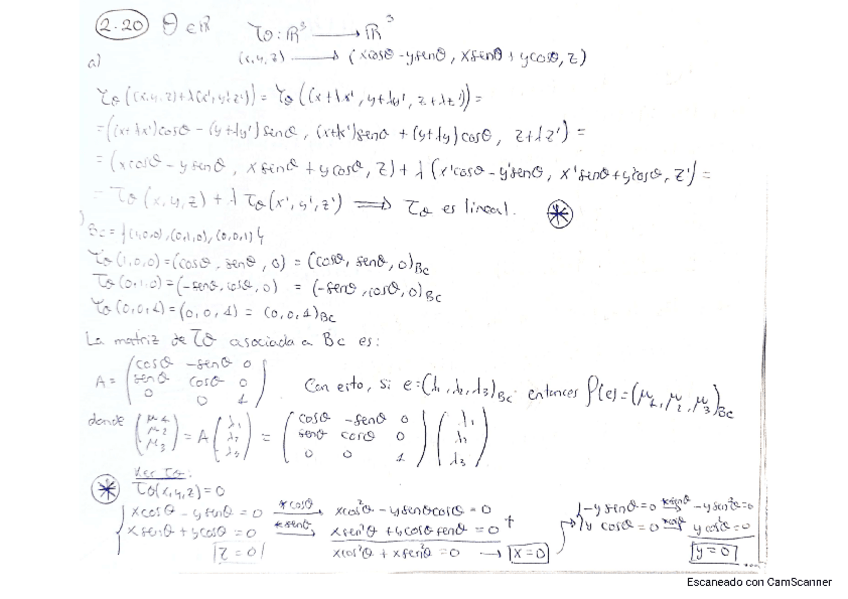 2.20 θ∈ℝ τθ: ℝ³ → ℝ³
a) (x,y,z) → (xcosθ-ysenθ, xsenθ+ycosθ, z)
τθ((x,y,z)+λ(x',y',z')) = τθ((x+λx', y+λy', z+λz')) =
=((x+λx')cosθ - (y+λy')senθ, (x+λx')senθ + (y+λy)cosθ, z+λz') =
= (xcosθ - ysenθ, xsinθ + ycosθ, z) + λ (x'cosθ - y'senθ, x'senθ+y'cosθ, z') =
= τθ(x,y,z) + λ τθ(x',y',z') ⟹ τθ es lineal. ⊛
) Bc={(1,0,0),(0,1,0),(0,0,1)}
τθ(1,0,0)=(cosθ, senθ, 0) = (cosθ, senθ, 0)Bc
τθ(0,1,0)=(-senθ, cosθ, 0) = (-senθ, cosθ, 0)Bc
τθ(0,0,1)=(0,0,1) = (0,0,1)Bc
La matriz de τθ asociada a Bc es:
A= (cosθ -senθ 0
senθ cosθ 0
0 0 1) Con esto, si e=(λ1, λ2, λ3)Bc entonces f(e)=(μ1, μ2, μ3)Bc
donde (μ1 μ2 μ3) = A (λ1 λ2 λ3) = (cosθ -senθ 0
senθ cosθ 0
0 0 1) (λ1 λ2 λ3)
⊛ Ker τθ:
τθ(x,y,z)=0
xcosθ - ysenθ = 0 *cosθ→ xcos²θ - ysenθcosθ = 0
xsenθ + ycosθ = 0 *senθ→ xsen²θ + ycosθsenθ = 0 +
z=0 xcos²θ + xsen²θ = 0 → x=0
-ysinθ=0 *senθ→ -ysen²θ=0
ycosθ=0 *cosθ→ ycos²θ=0
y=0
Escaneado con CamScanner